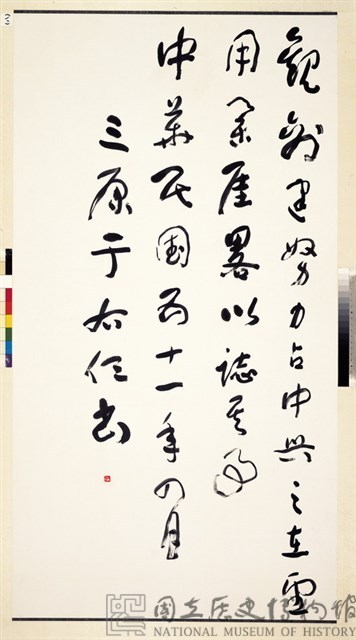 觀創建努力占中興之在望
用舉厓畧以誌其
中華民國五十一年四月
三原于右任書
國立歷史博物館
NATIONAL MUSEUM OF HISTORY